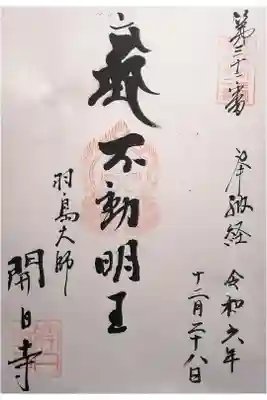 第三十二番
奉納経
令和六年
十二月二十八日
不動明王
羽島大師
開日寺